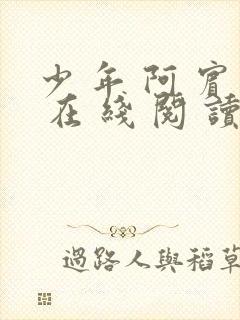 少年阿賓
在綫閱讀
過路人與稻草